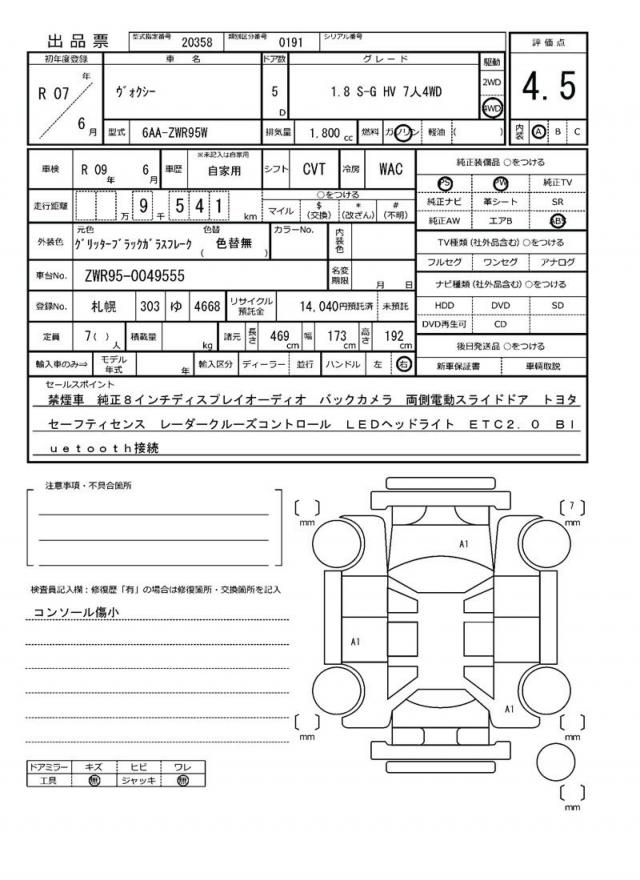 出品票 型式指定番号 20358 類別区分番号 0191 シリアル番号
初年度登録 車名 ドア数 グレード 駆動 評価点
R 07 年 6 月 ヴォクシー 5 D 1.8 S-G HV 7人4WD 2WD 4WD 4.5
型式 6AA-ZWR95W 排気量 1.800 cc 燃料 ガソリン 軽油 ( ) 内装 A B C
車検 R 09 年 6 月 車歴 ※未記入は自家用 自家用 シフト CVT 冷房 WAC 純正装備品 ○をつける
PS PW 純正TV
走行距離 万 9 千 5 4 1 km ○をつける マイル $ (交換) * (改ざん) # (不明) 純正ナビ 革シート SR
純正AW エアB ABS
外装色 元色 グリッターブラックガラスフレーク 色替 ( 色替無 ) カラーNo. 内装色 TV種類 (社外品含む) ○をつける
フルセグ ワンセグ アナログ
車台No. ZWR95-0049555 名変期限 月 日 ナビ種類 (社外品含む) ○をつける
登録No. 札幌 303 ゆ 4668 リサイクル預託金 14,040円預託済 未預託 HDD DVD SD
DVD再生可 CD
定員 7( ) 人 積載量 kg 諸元 長さ 469 cm 幅 173 cm 高さ 192 cm 後日発送品 ○をつける
輸入車のみ⇒ モデル年式 年 輸入区分 ディーラー 並行 ハンドル 左 右 新車保証書 車輌取説
セールスポイント
禁煙車 純正８インチディスプレイオーディオ バックカメラ 両側電動スライドドア トヨタ
セーフティセンス レーダークルーズコントロール ＬＥＤヘッドライト ＥＴＣ２．０ Ｂｌ
ｕｅｔｏｏｔｈ接続
注意事項・不具合箇所
検査員記入欄：修復歴「有」の場合は修復箇所・交換箇所を記入
コンソール傷小
[ ] mm [ 7 ] mm
A1
A1
A1
[ ] mm [ ] mm
[ ] mm
ドアミラー キズ ヒビ ワレ
工具 無 ジャッキ 無